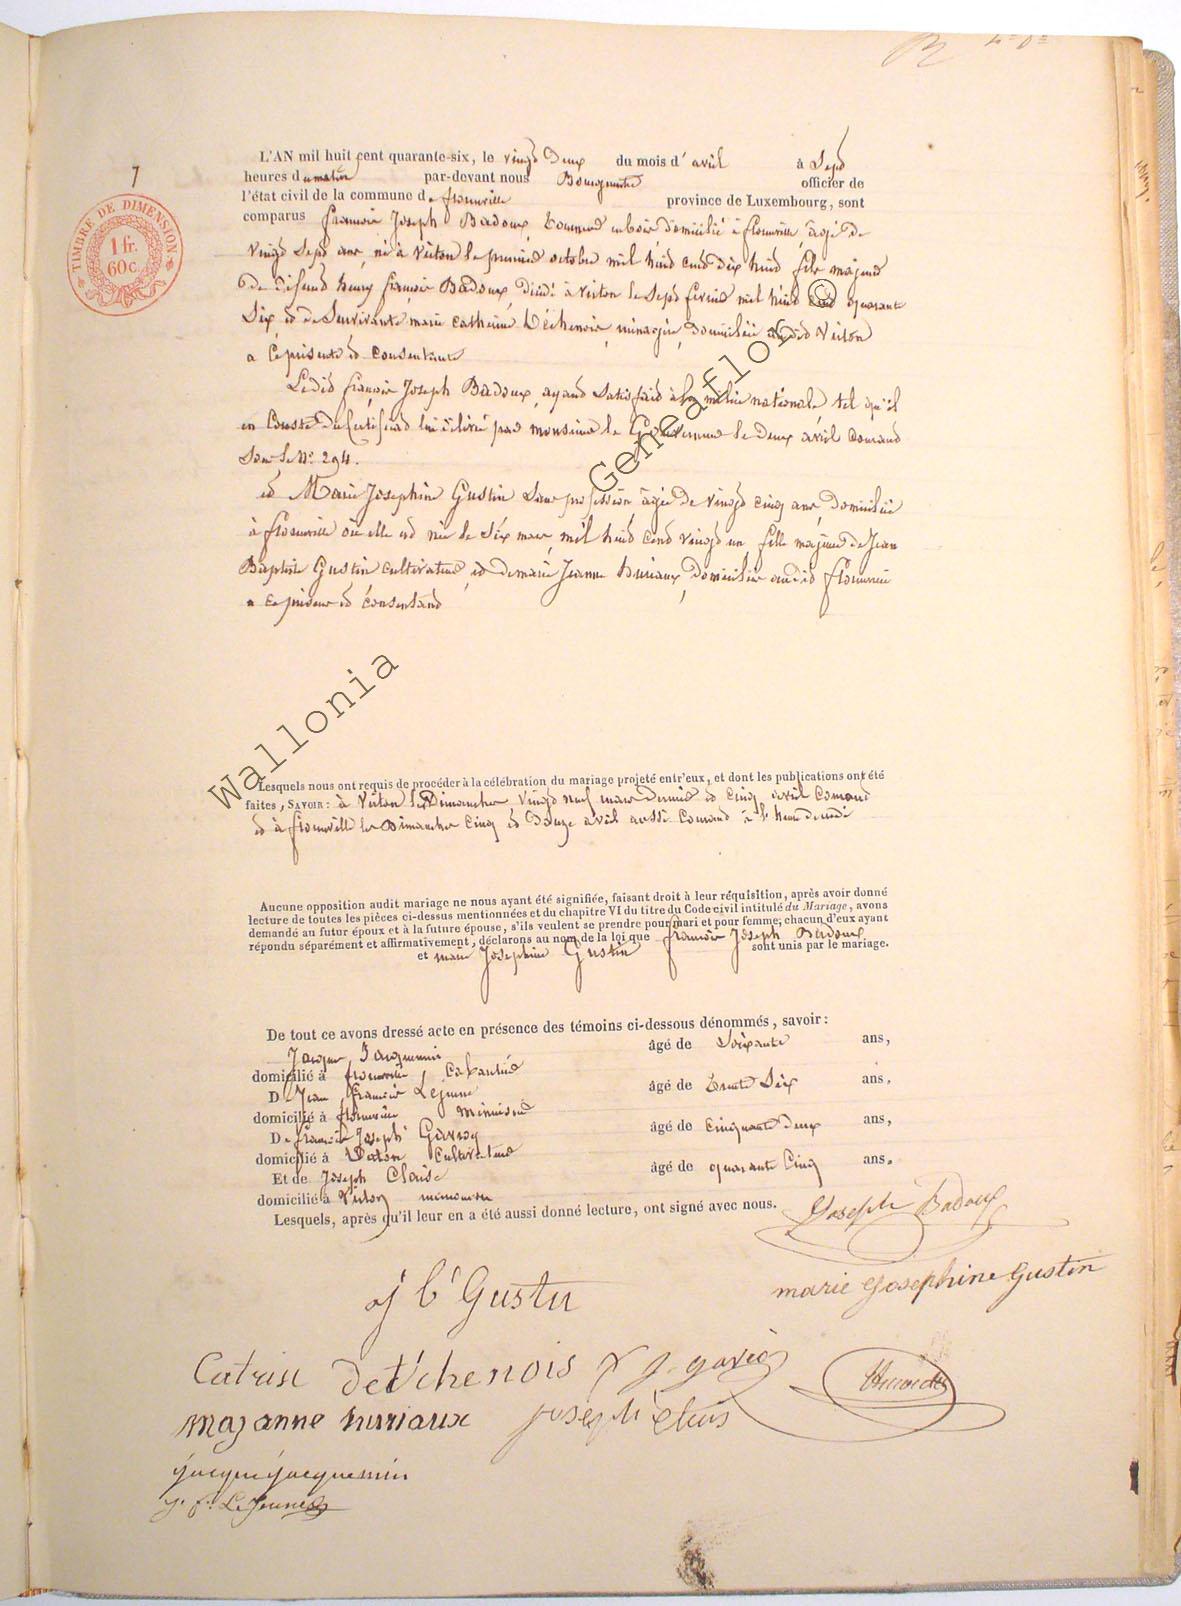 7
TIMBRE DE DIMENSION
1 fr.
60 c.
L'AN mil huit cent quarante-six, le vingt deux du mois d'avril à Sept
heures du matin par-devant nous officier de
l'état civil de la commune de florenville province de Luxembourg, sont
comparus françois Joseph Badoux, domicilié à florenville, agé de
vingt Sept ans, né à Virton le premier octobre mil huit cent dix huit fils majeur
de défunt henry françois Badoux, décédé à virton le Sept février mil huit cent quarante
Six, et de Survivante marie catherine Détchenois, ménagère, domiciliée audit Virton
a ce présente et consentante
Ledit françois Joseph Badoux, ayant Satisfait à la milice nationale, tel qu'il
en Conste du Certificat lui délivré par monsieur le Gouverneur le deux avril Courant
Sous le N° 294.
et Marie Josephine Gustin Sans profession agée de vingt cinq ans, domiciliée
à florenville où elle est née le Six mars mil huit cent vingt un fille majeure de Jean
Baptiste Gustin cultivateur, et de marie Jeanne huriaux, domiciliés audit florenville
a ce présens et consentans
Lesquels nous ont requis de procéder à la célébration du mariage projeté entr'eux, et dont les publications ont été
faites, SAVOIR : à virton les Dimanches vingt neuf mars dernier et cinq avril Courant
et à florenville les Dimanches Cinq et Douze avril aussi Courant à l'heure de midi
Aucune opposition audit mariage ne nous ayant été signifiée, faisant droit à leur réquisition, après avoir donné
lecture de toutes les pièces ci-dessus mentionnées et du chapitre VI du titre du Code civil intitulé du Mariage, avons
demandé au futur époux et à la future épouse, s'ils veulent se prendre pour mari et pour femme; chacun d'eux ayant
répondu séparément et affirmativement, déclarons au nom de la loi que françois Joseph Badoux
et marie Josephine Gustin sont unis par le mariage.
De tout ce avons dressé acte en présence des témoins ci-dessous dénommés, savoir :
Jacques Jacquemin âgé de Soixante ans,
domicilié à florenville, Cabaretier
De Jean françois Lejeune âgé de trente Six ans,
domicilié à florenville menuisier
De françois Joseph âgé de cinquante deux ans,
domicilié à Virton Cultivateur
Et de Joseph Claise âgé de quarante Cinq ans.
domicilié à Virton
Lesquels, après qu'il leur en a été aussi donné lecture, ont signé avec nous.
Joseph Badoux
marie Josephine Gustin
j b Gustin
Catrine detchenois
majanne hurriaux
jacque jacquemin
j. f. LeJeune
Wallonia Geneaflor ©